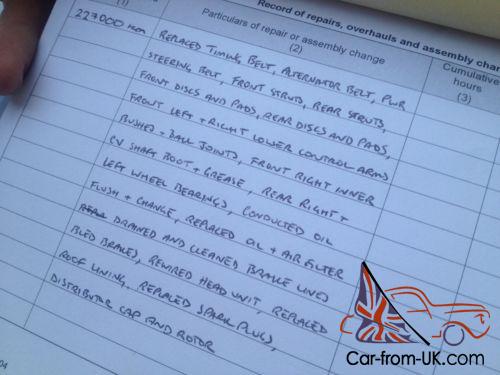 Record of repairs, overhauls and assembly chan
(1)
Particulars of repair or assembly change
(2)
Cumulative
hours
(3)
227000 km
REPLACED TIMING BELT, ALTERNATOR BELT, PWR
STEERING BELT, FRONT STRUTS, REAR STRUTS,
FRONT DISCS AND PADS, REAR DISCS AND PADS,
FRONT LEFT + RIGHT LOWER CONTROL ARMS
BUSHES + BALL JOINTS, FRONT RIGHT INNER
CV SHAFT BOOT + GREASE, REAR RIGHT +
LEFT WHEEL BEARINGS, CONDUCTED OIL
FLUSH + CHANGE, REPLACED OIL + AIR FILTER
DRAINED AND CLEANED BRAKE LINES
BLED BRAKES, REWIRED HEAD UNIT, REPLACED
ROOF LINING, REPLACED SPARK PLUGS,
DISTRIBUTOR CAP AND ROTOR
04
Car-from-UK.com